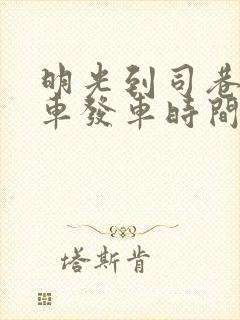 明光到司巷
車發車時間
塔斯肯